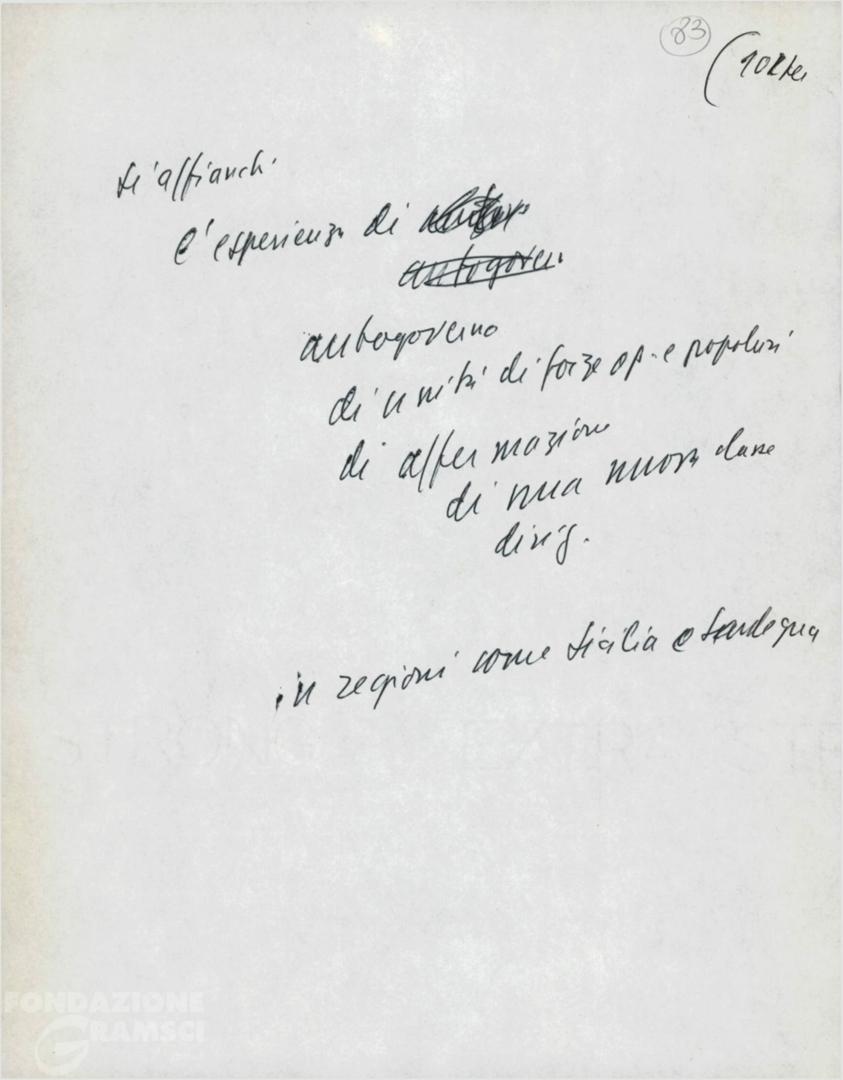 83
si affianchi
l'esperienza di
autogover
autogoverno
di unità di forze op. e popolari
di affermazione
di una nuova classe
dirig.
in regioni come Sicilia e Sardegna
FONDAZIONE
GRAMSCI